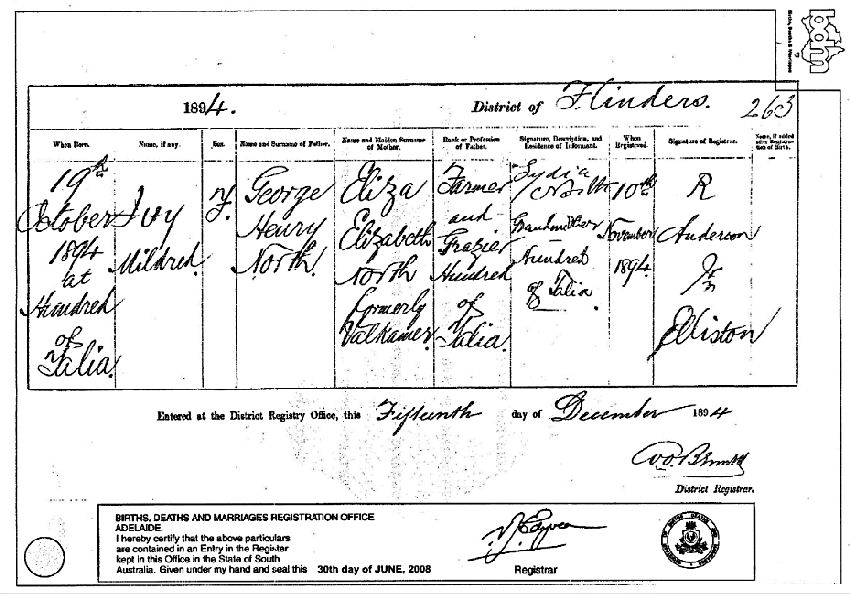 Births, Deaths & Marriages
bdm
1894. District of Flinders. 263
When Born. Name, if any. Sex. Name and Surname of Father. Name and Maiden Surname of Mother. Rank or Profession of Father. Signature, Description, and Residence of Informant. When Registered. Signature of Registrar. Name, if added after Registration of Birth.
19th October 1894 at Hundred of Talia.
Ivy Mildred
F.
George Henry North
Eliza Elizabeth North formerly Valkamer
Farmer and Grazier Hundred of Talia.
Lydia North Grandmother Hundred of Talia
10th November 1894
R Anderson Jr Elliston
Entered at the District Registry Office, this Fifteenth day of December 1894
District Registrar.
BIRTHS, DEATHS AND MARRIAGES REGISTRATION OFFICE
ADELAIDE.
I hereby certify that the above particulars
are contained in an Entry in the Register
kept in this Office in the State of South
Australia. Given under my hand and seal this 30th day of JUNE, 2008
Registrar